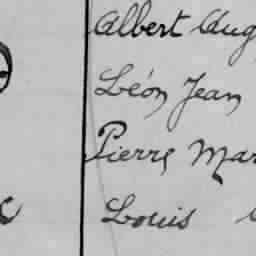 Albert Aug
Léon Jean
Pierre Mar
Louis